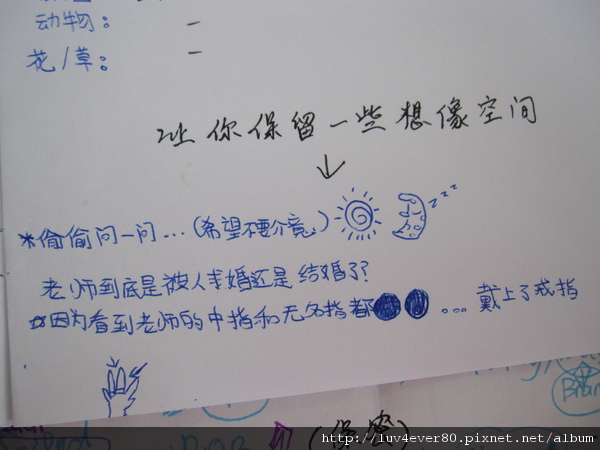 动物: —
花/草: —
让你保留一些想像空间
*偷偷问一问...(希望不要介意。) zzz
老师到底是被人求婚还是结婚了?
因为看到老师的中指和无名指都 ... 戴上了戒指
(保密)
http://luv4ever80.pixnet.net/album